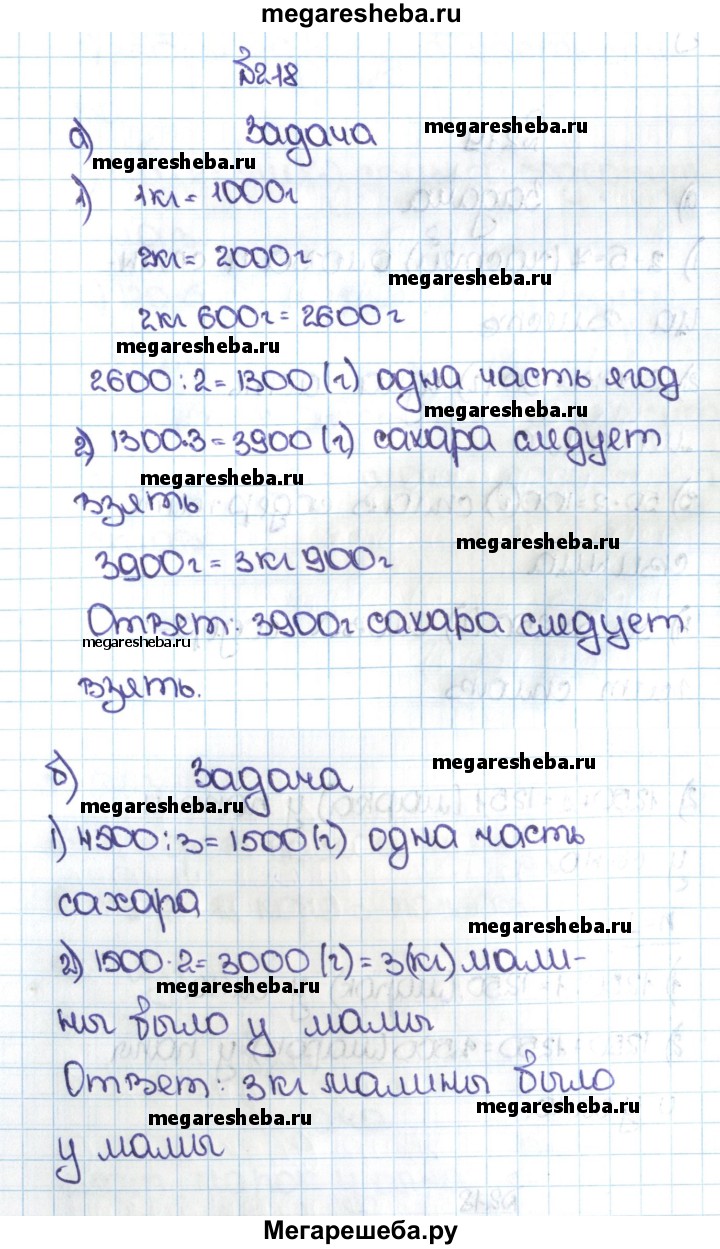 megaresheba.ru
№218
а) Задача
megaresheba.ru
megaresheba.ru
1) 1кг = 1000г
2кг = 2000г
megaresheba.ru
2кг 600г = 2600г
megaresheba.ru
2600 : 2 = 1300 (г) одна часть ягод
megaresheba.ru
2) 1300·3 = 3900 (г) сахара следует
megaresheba.ru
взять
megaresheba.ru
3900г = 3кг 900г
Ответ: 3900г сахара следует
megaresheba.ru
взять.
megaresheba.ru
б) Задача
megaresheba.ru
1) 4500 : 3 = 1500 (г) одна часть
сахара
megaresheba.ru
2) 1500 · 2 = 3000 (г) = 3(кг) мали-
megaresheba.ru
ны было у мамы
Ответ: 3кг малины было
megaresheba.ru
megaresheba.ru
у мамы
Мегарешеба.ру